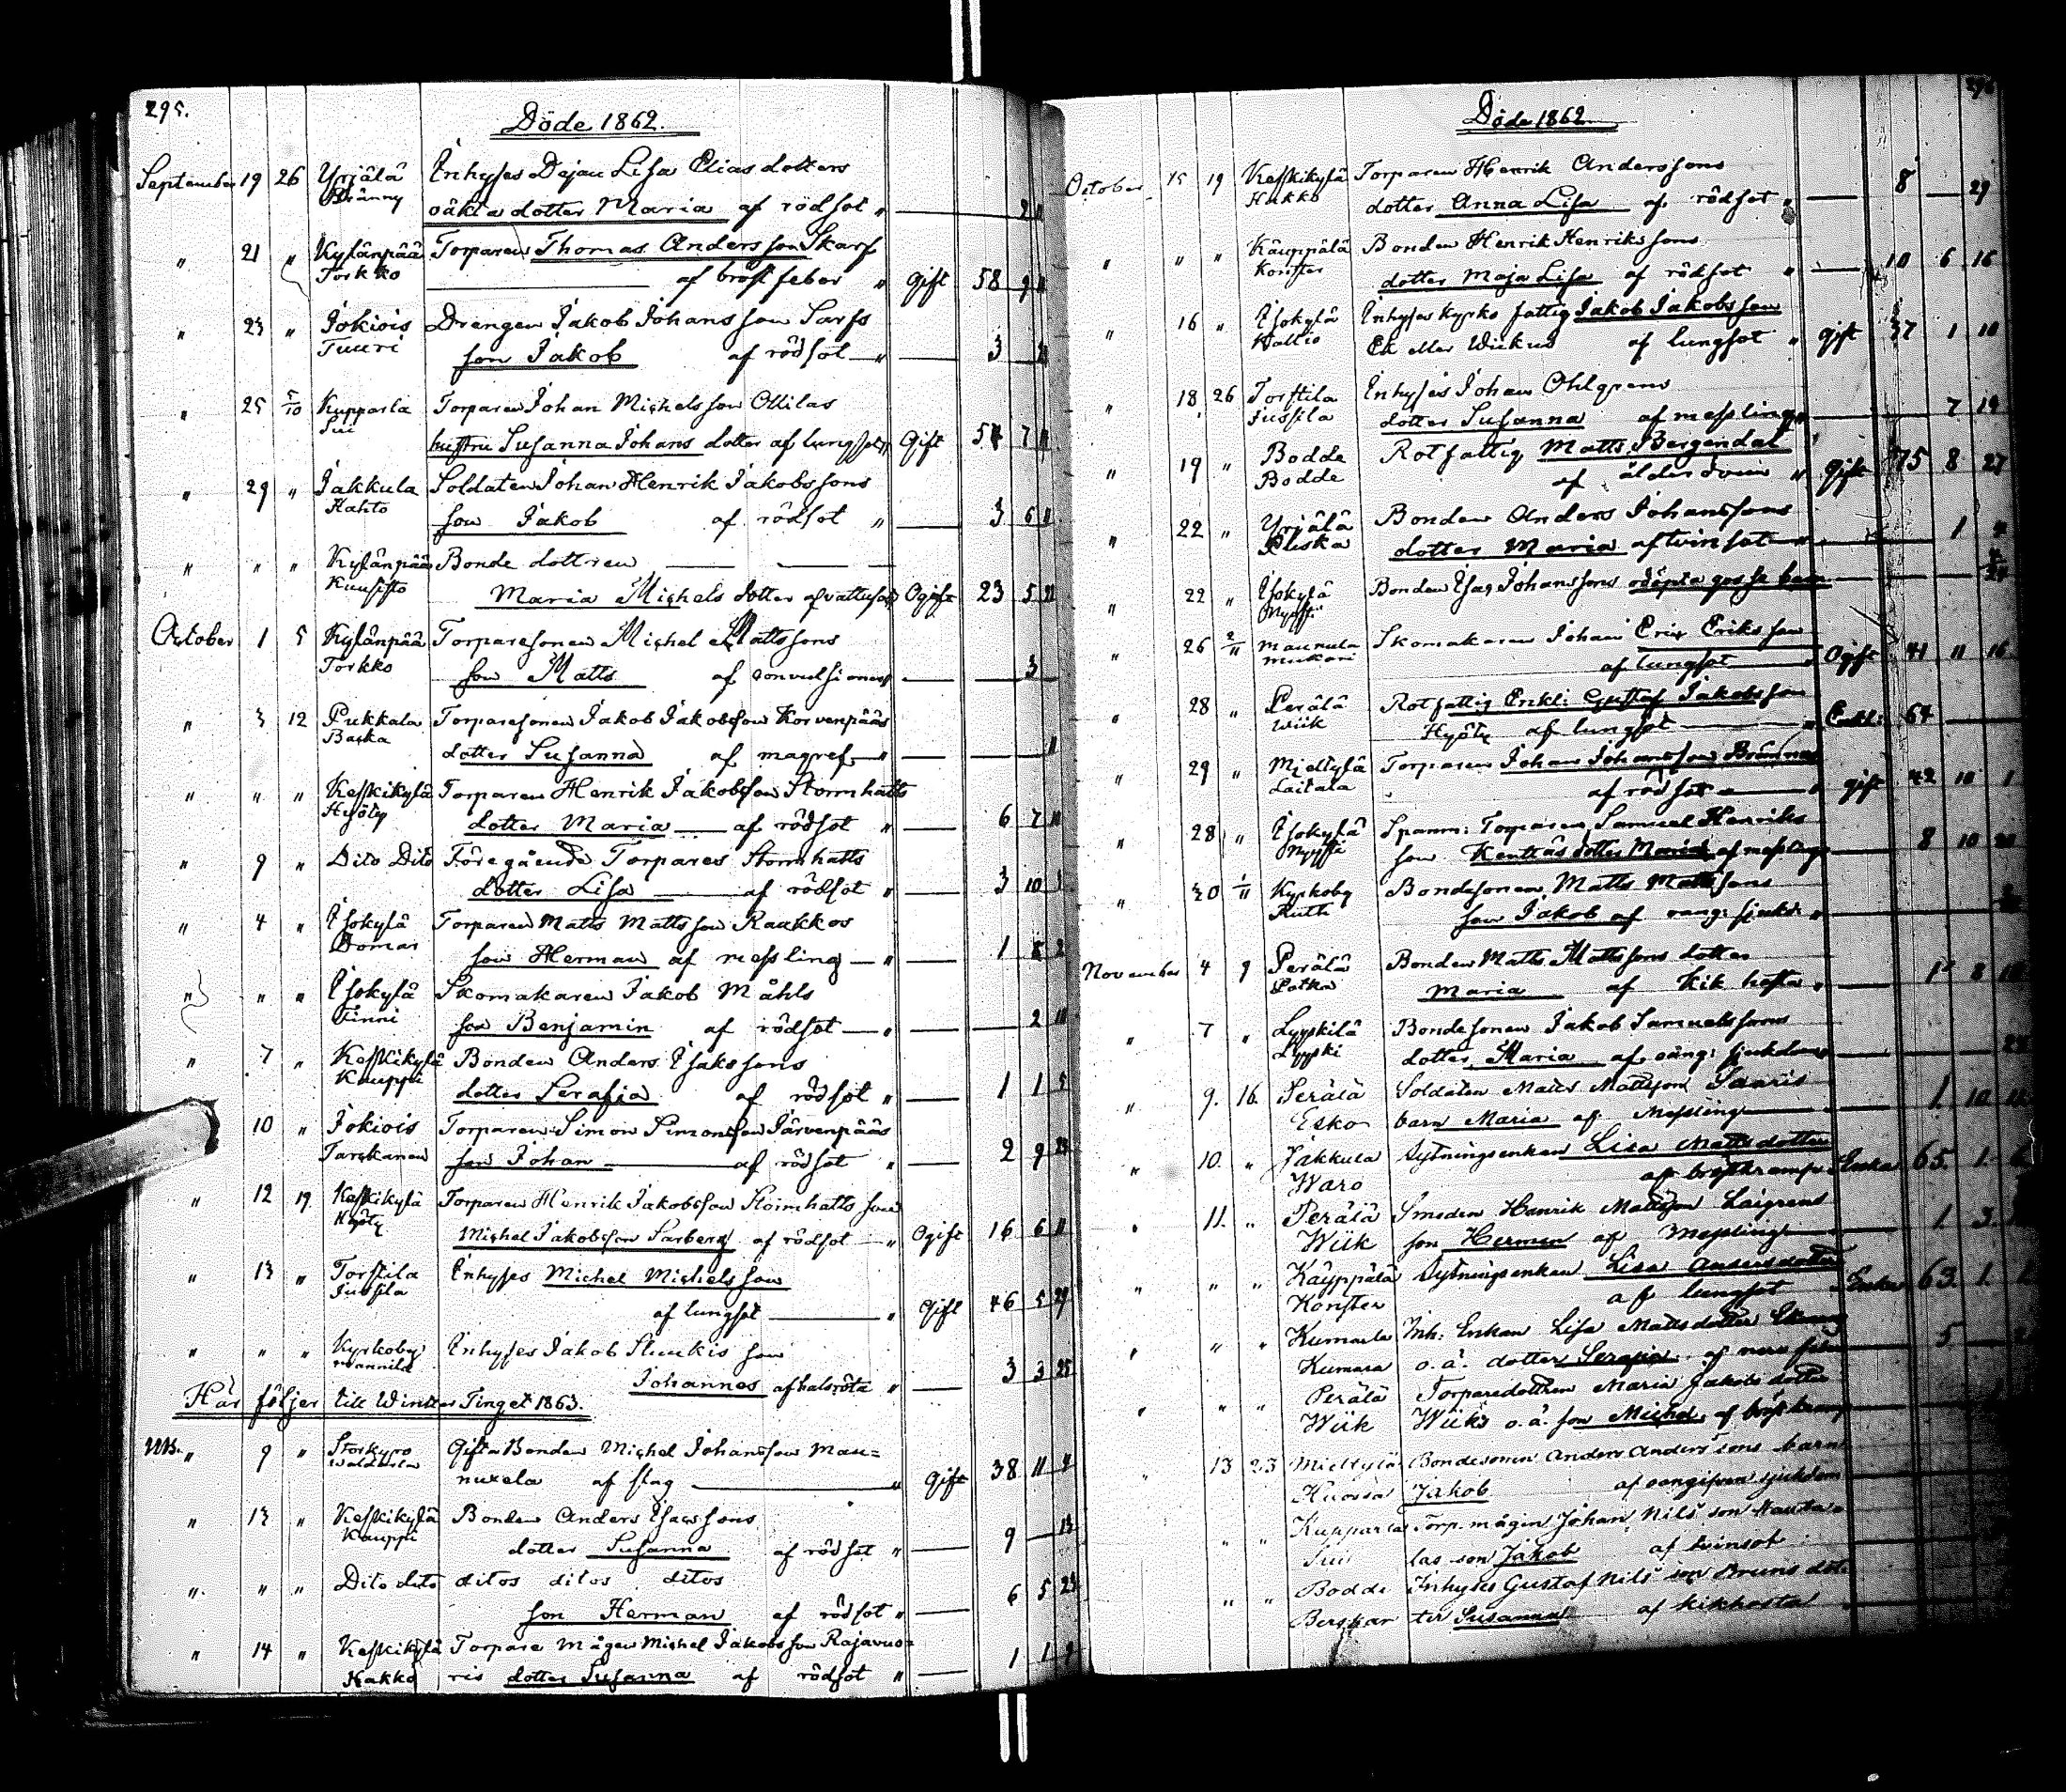 295.
Döde 1862.
September 19 26 Yrjälä Inhyses Dejan Lisa Eliasdotters
Pränny oäkta dotter Maria af rödsot " — 2 "
" 21 " Kylänpää Torparen Thomas Andersson Skarf
Torkko af bröstfeber " Gift 58 9 "
" 23 " Jokiois Drengen Jakob Johansson Sarfs
Tuuri son Jakob af rödsot — " — 3
" 25 5/10 Kupparla Torparen Johan Michelsson Ollilas
Sui hustru Susanna Johansdotter af lungsot " Gift 54 7 "
" 29 " Jakkula Soldaten Johan Henrik Jakobssons
Kahto son Jakob af rödsot " — 3 6 "
" " " Kylänpää Bonde dottren
Kuusisto Maria Michelsdotter af vattusot Ogift 23 5
October 1 5 Kylänpää Torparesonen Michel Mattssons
Torkko son Matts af convulsioner — 3
" 3 12 Pukkala Torparesonen Jakob Jakobsson Korvenpääs
Backa dotter Susanna af magref — " — "
" " " Keskikylä Torparen Henrik Jakobsson Stormhatts
Hyöty dotter Maria — af rödsot " — 6 7
" 9 " Dito Dito Föregående Torpares Stormhatts
dotter Lisa — af rödsot " — 3 10
" 4 " Isokylä Torparen Matts Mattsson Raakkos
Domar son Herman af messling — " — 1 8 2
" " " Isokylä Skomakaren Jakob Måhls
Finni son Benjamin af rödsot — " — 2
" 7 " Keskikylä Bonden Anders Isakssons
Kauppi dotter Serafia af rödsot " — 1 1 5
10 " Jokiois Torparen Simon Simonsson Järvenpääs
Tarckanen son Johan — af rödsot " — 2 9 23
" 12 19 Keskikylä Torparen Henrik Jakobsson Stormhatts son
Hyöty Michel Jakobsson Sarberg af rödsot — " Ogift 16 6 11
" 13 " Torstila Inhyses Michel Michelsson
Jussila af lungsot — " Gift 46 5 29
" " " Kyrkoby Inhyses Jakob Stuukis son
Mannila Johannes af halsröta " — 3 3 25
Här följer till Winter Tinget 1863.
NB. " 9 " Storkyro Gifta Bonden Michel Johansson Mau=
nuxela af slag — " Gift 38 11
" 13 " Keskikylä Bonden Anders Isacssons
Kauppi dotter Susanna af rödsot " — 9 — 13
" " " Dito dito ditos ditos ditos
son Herman af rödsot " — 6 5 23
" 14 " Keskikylä Torpare mågen Michel Jakobsson Rajavuo=
Hakko ris dotter Susanna af rödsot " — 1 1
Döde 1862
October 15 19 Keskikylä Torparen Henrik Anderssons
Hakko dotter Anna Lisa af rödsot " — 8 — 29
" " " Käuppälä Bonden Henrik Henrikssons
Konster dotter Maja Lisa af rödsot " — 10 6 16
" 16 " Isokylä Inhyses kyrko fattig Jakob Jakobsson
Kallio Ek eller Wiikus af lungsot " gift 37 1 10
" 18 26 Torstila Inhyses Johan Ohlgrens
Jussila dotter Susanna af messling " — 7 19
" 19 " Bodde Rotfattig Matts Bergendal
Bodde af ålderdom " Gift 75 8 27
" 22 " Yrjälä Bonden Anders Johanssons
Pliska dotter Maria af tvinsot — " — 1 4
" 22 " Isokylä Bonden Esaj Johanssons odöpta gosse barn
" 26 2/11 Maunula Skomakaren Johan Eric Eriksson
Mukari af lungsot — " Ogift 41 11 16
" 28 " Perälä Rotfattig Enkl: Gustaf Jakobsson
Wiik Hyöty af lungsot — Enkl: 64
" 29 " Miettylä Torparen Johan Johansson Brännas
Laitala af rödsot — " gift 42 10 1
" 28 " Isokylä Spanm: Torparen Samuel Henriks
son Kenttäs dotter Maria af messling — 8 10
" 30 1/11 Kyrkoby Bondesonen Matts Mattssons
Ruth son Jakob af oang: sjukd: "
November 4 9 Perälä Bonden Matts Mattssons dotter
Potka Maria af kikhosta " — 8
" 7 " Lyyskilä Bondesonen Jakob Samuelssons
Lyyski dotter Maria af oäng: sjukdom
" 9. 16. Perälä Soldaten Matts Mattsson Saaris
Esko barn Maria af Messling — 1. 10
" 10. " Jakkula Sytningsenkan Lisa Mattsdotter
Waro af bröstkramp Enka 65. 1.
" 11. " Perälä Smeden Henrik Mattsson Laigrens
Wiik son Herman af Messling — 1. 3.
" " " Käyppälä Sytningsenkan Lisa Andersdotter
Konster af lungsot Enka 63. 1.
" " " Kumarla Inh: Enkan Lisa Mattsdotter
Kumara o. ä. dotter Serafia af nerv feber 5.
" " " Perälä Torparedottren Maria Jakobsdotter
Wiik Wiiks o. ä. son Michel af bröstkramp
13 23 Miettylä Bondesonen Anders Anderssons barn
Jakob af oangifven sjukdom
" " Kupparla Torp. mågen Johan Nils son Hautaa
Sui las son Jakob af tvinsot
" " Bodde Inhyses Gustaf Nils son Bruns dot
Berskar ter Susanna af kikhosta